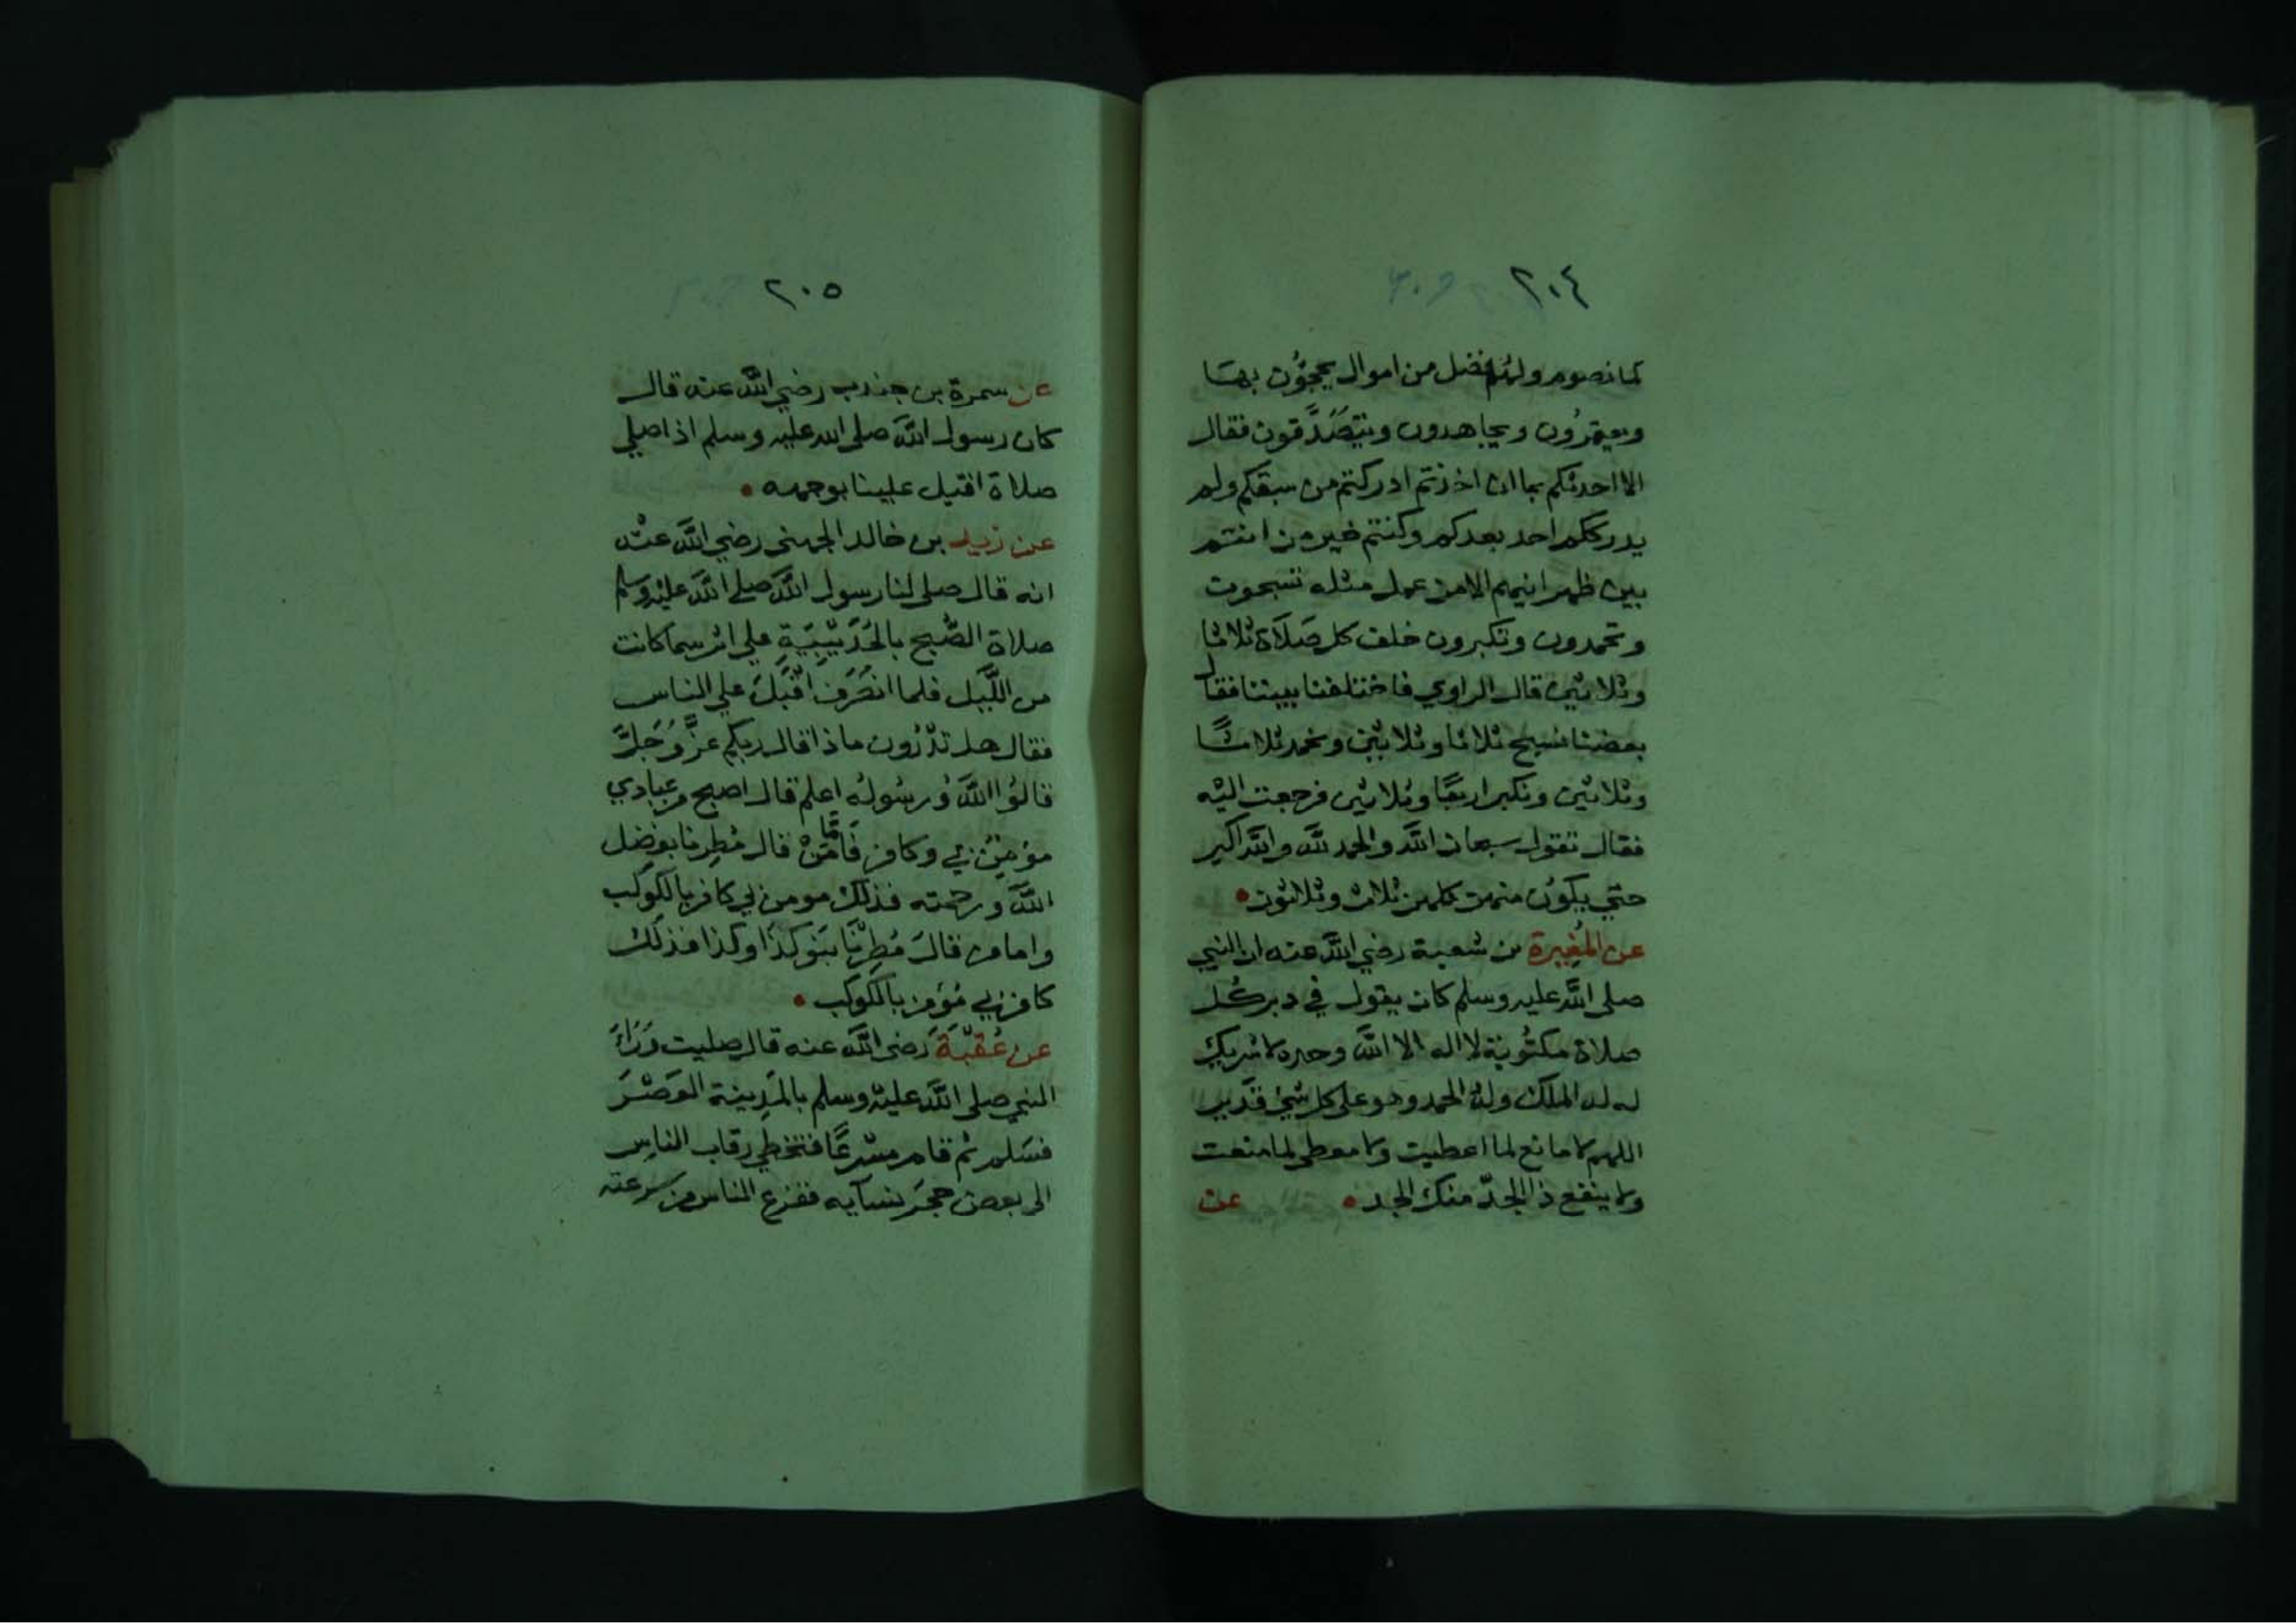 ٢٠٤
كما نصوم ولهم فضل من اموال يحجّون بها
ويعتمرُون ويجاهدون ويتصَدَّقون فقال
الا احدثكم بما ان اخذتم ادركتم من سبقكم ولم
يدرككم احد بعدكم وكنتم خير من انتم
بين ظهرانيهم الا من عمل مثله تسبحون
وتحمدون وتكبرون خلف كل صَلَاة ثلاثا
وثلاثين قال الراوي فاختلفنا بيننا فقال
بعضنا نسبح ثلاثا وثلاثين ونحمد ثلاثًا
وثلاثين ونكبر اربعًا وثلاثين فرجعت اليه
فقال تقول سبحان الله والحمد لله والله اكبر
حتي يكون منهن كلهن ثلاث وثلاثون
عن المُغِيرة بن شعبة رضي الله عنه ان النبي
صلى الله عليه وسلم كان يقول في دبر كُل
صلاة مكتُوبة لا اله الا الله وحده لا شريك
له له الملك وله الحمد وهو على كل شئ قدير
اللهم لا مانع لما اعطيت ولا معطي لما منعت
ولا ينفع ذا الجدّ منك الجد
عن
٢٠٥
عن سمرة بن جندب رضي الله عنه قال
كان رسول الله صلى الله عليه وسلم اذا صلي
صلاة اقبل علينا بوجهه
عن زيد بن خالد الجهني رضي الله عنه
انه قال صلى لنا رسول الله صلى الله عليه وسلم
صلاة الصُّبح بالحُدَيْبِيَةِ علي اثر سما كانت
من اللَّيل فلما انصَرَف اقْبَلَ علي الناس
فقال هل تدْرُون ماذا قال ربكم عزَّ وَجَلَّ
قالوُا اللهُ وَرسُولُه اعلم قال اصبح من عبادي
مؤمِنٌ بي وكافر فَامَّا مَنْ قال مُطِرنا بفضل
الله ورحمته فذلك مومن بي كافر بالكوكب
واما من قالَ مُطِرْنَا بنَو كذا وكذا فذلك
كافر بي مُؤمن بالكوكب
عن عُقْبَةَ رَضي الله عنه قال صليت وَرَاءَ
النبي صلى الله عليه وسلم بالمَدِينة العَصْرَ
فسَلم ثم قام مسْرعًا فتخطي رقاب الناس
الى بعض حجَر نسآيه ففزع الناس من سرعته